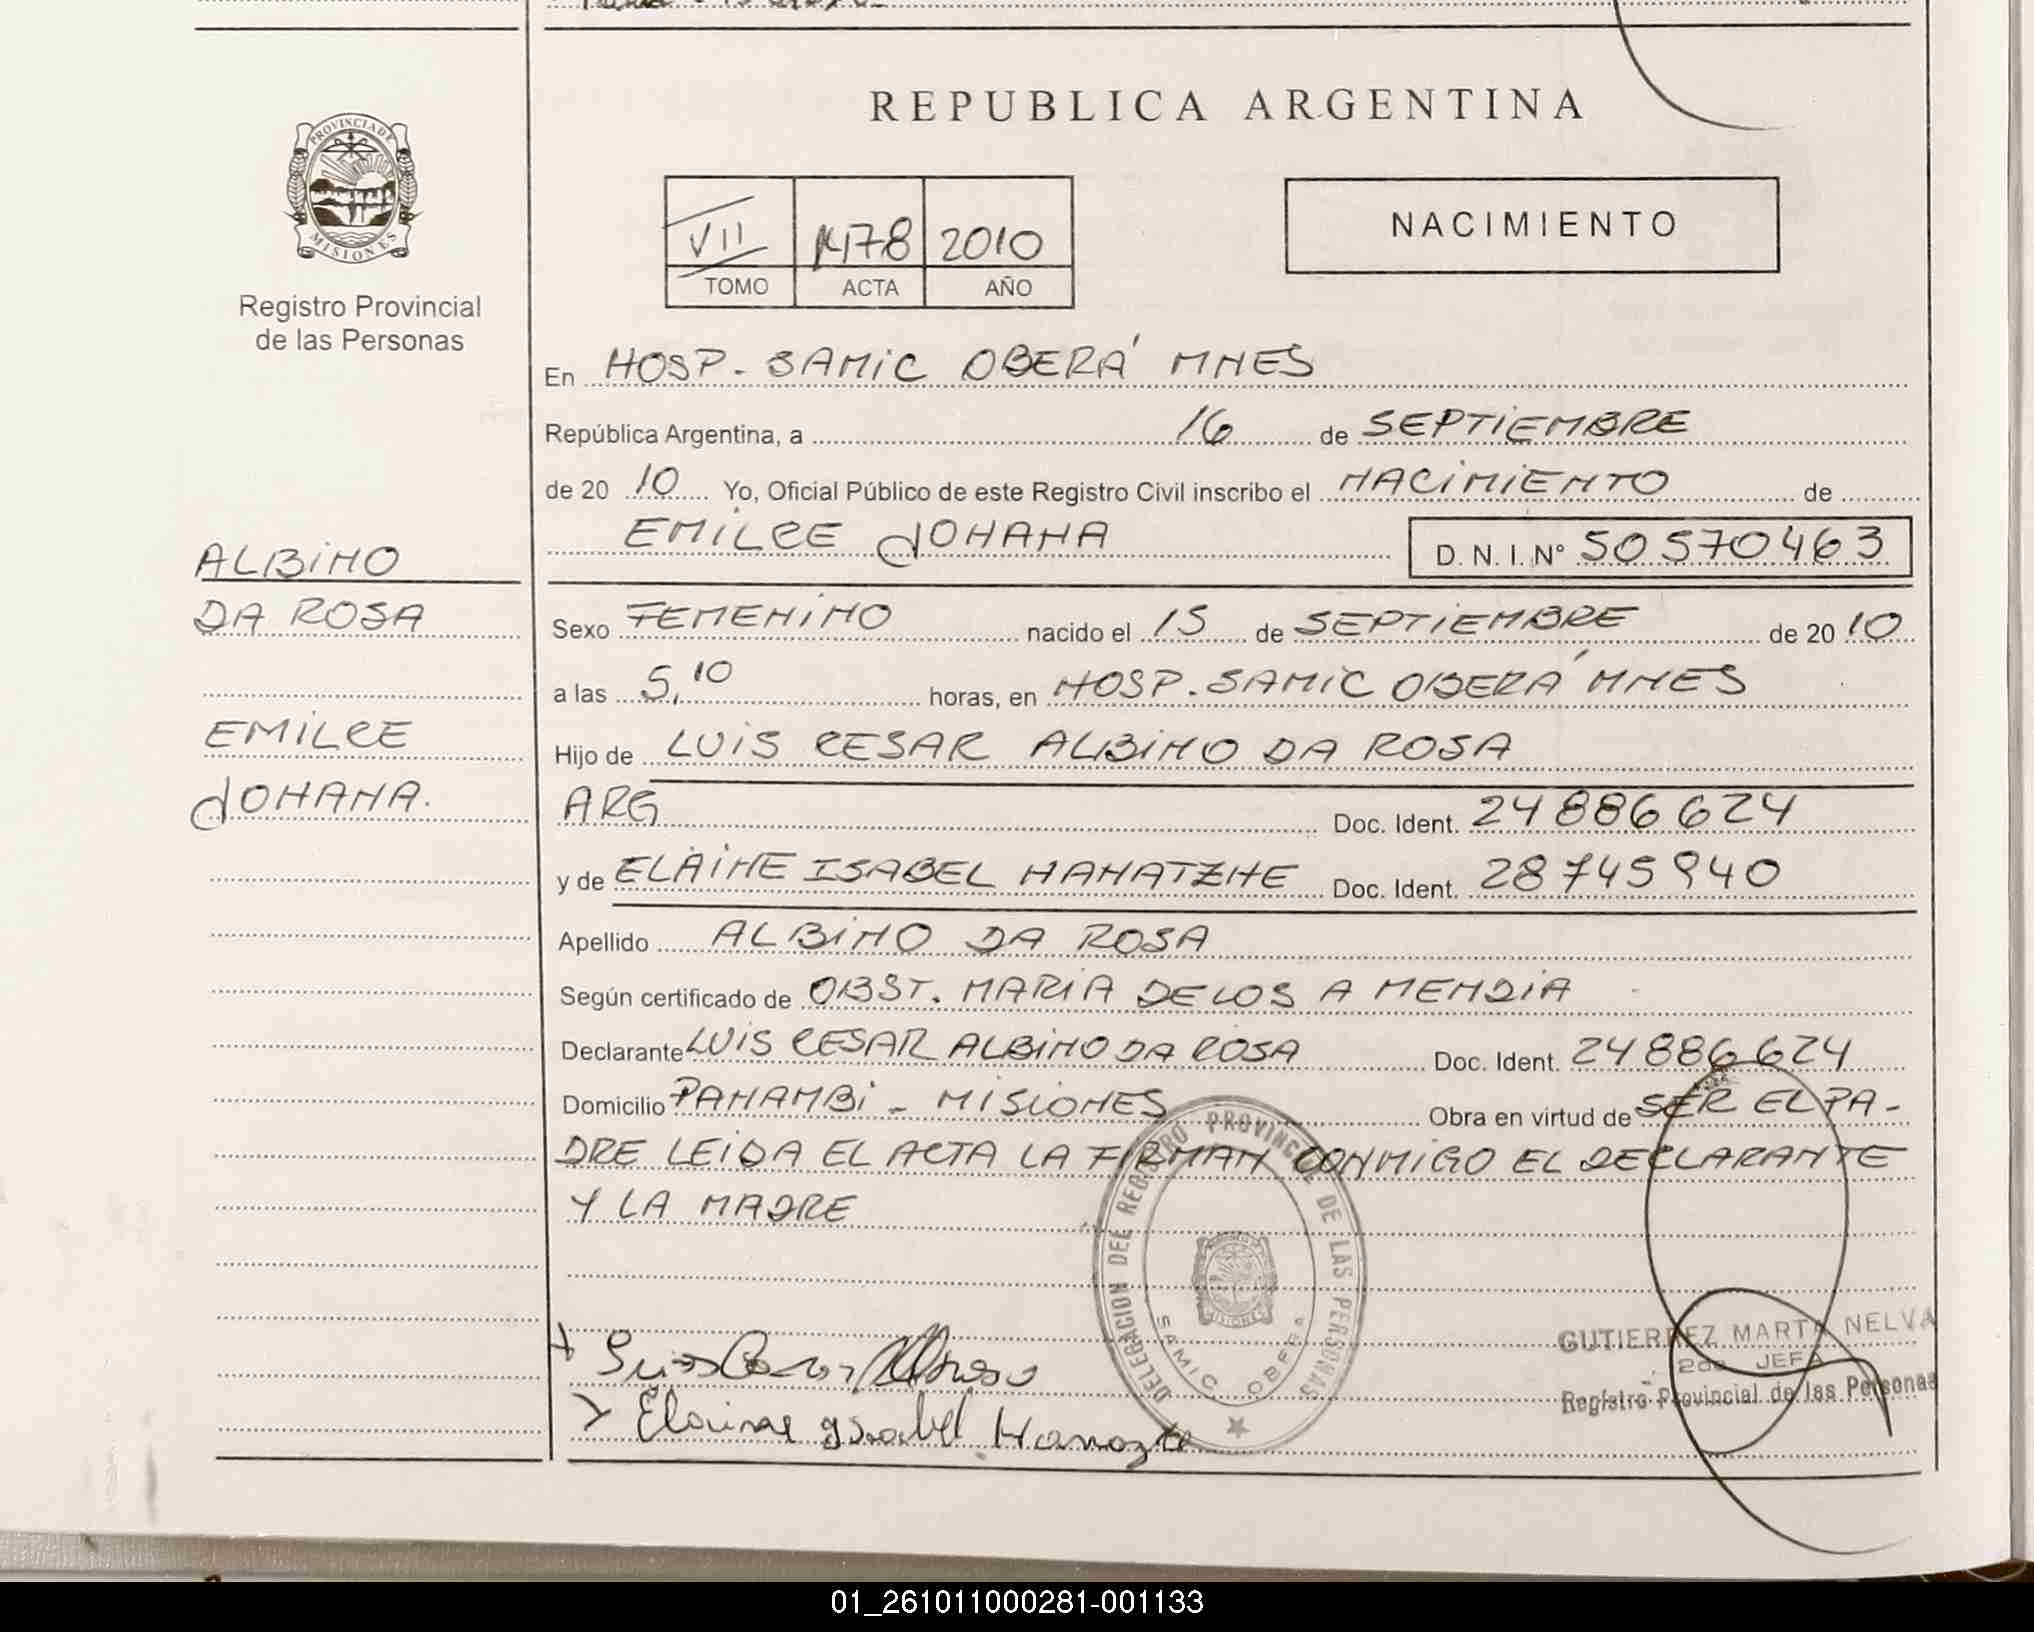 REPUBLICA ARGENTINA
PROVINCIA DE
MISIONES
Registro Provincial
de las Personas
VII 2010
TOMO ACTA AÑO
NACIMIENTO
En HOSP. SAMIC OBERÁ MNES
República Argentina, a 16 de SEPTIEMBRE
de 20 10 Yo, Oficial Público de este Registro Civil inscribo el NACIMIENTO de
EMILCE JOHANA D. N. I. Nº 50570463
ALBINO
DA ROSA
EMILCE
JOHANA.
Sexo FEMENINO nacido el 15 de SEPTIEMBRE de 20 10
a las 5,10 horas, en HOSP. SAMIC OBERÁ MNES
Hijo de LUIS CESAR ALBINO DA ROSA
ARG Doc. Ident. 24886624
y de ELAINE ISABEL HANATZHE Doc. Ident. 28745940
Apellido ALBINO DA ROSA
Según certificado de OBST. MARIA DE LOS A MENDIA
Declarante LUIS CESAR ALBINO DA ROSA Doc. Ident. 24886624
Domicilio PANAMBI - MISIONES Obra en virtud de SER EL PA-
DRE LEIDA EL ACTA LA FIRMAN CONMIGO EL DECLARANTE
Y LA MADRE
DELEGACION DEL REGISTRO PROVINCIAL DE LAS PERSONAS
SAMIC OBERA
MISIONES
Elaine Ysabel
GUTIERREZ MARTA NELVA
2da JEFA
Registro Provincial de las Personas
01_261011000281-001133